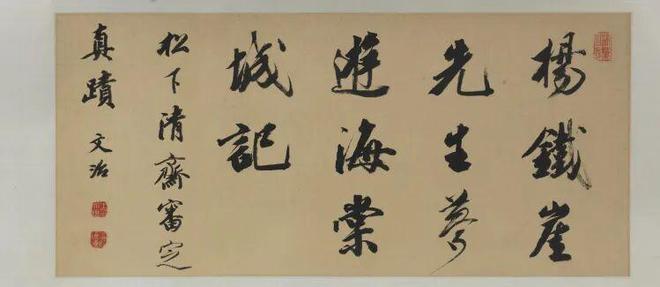 楊鐵崖
先生夢
遊海棠
城記
松下清齋審定
真蹟 文治